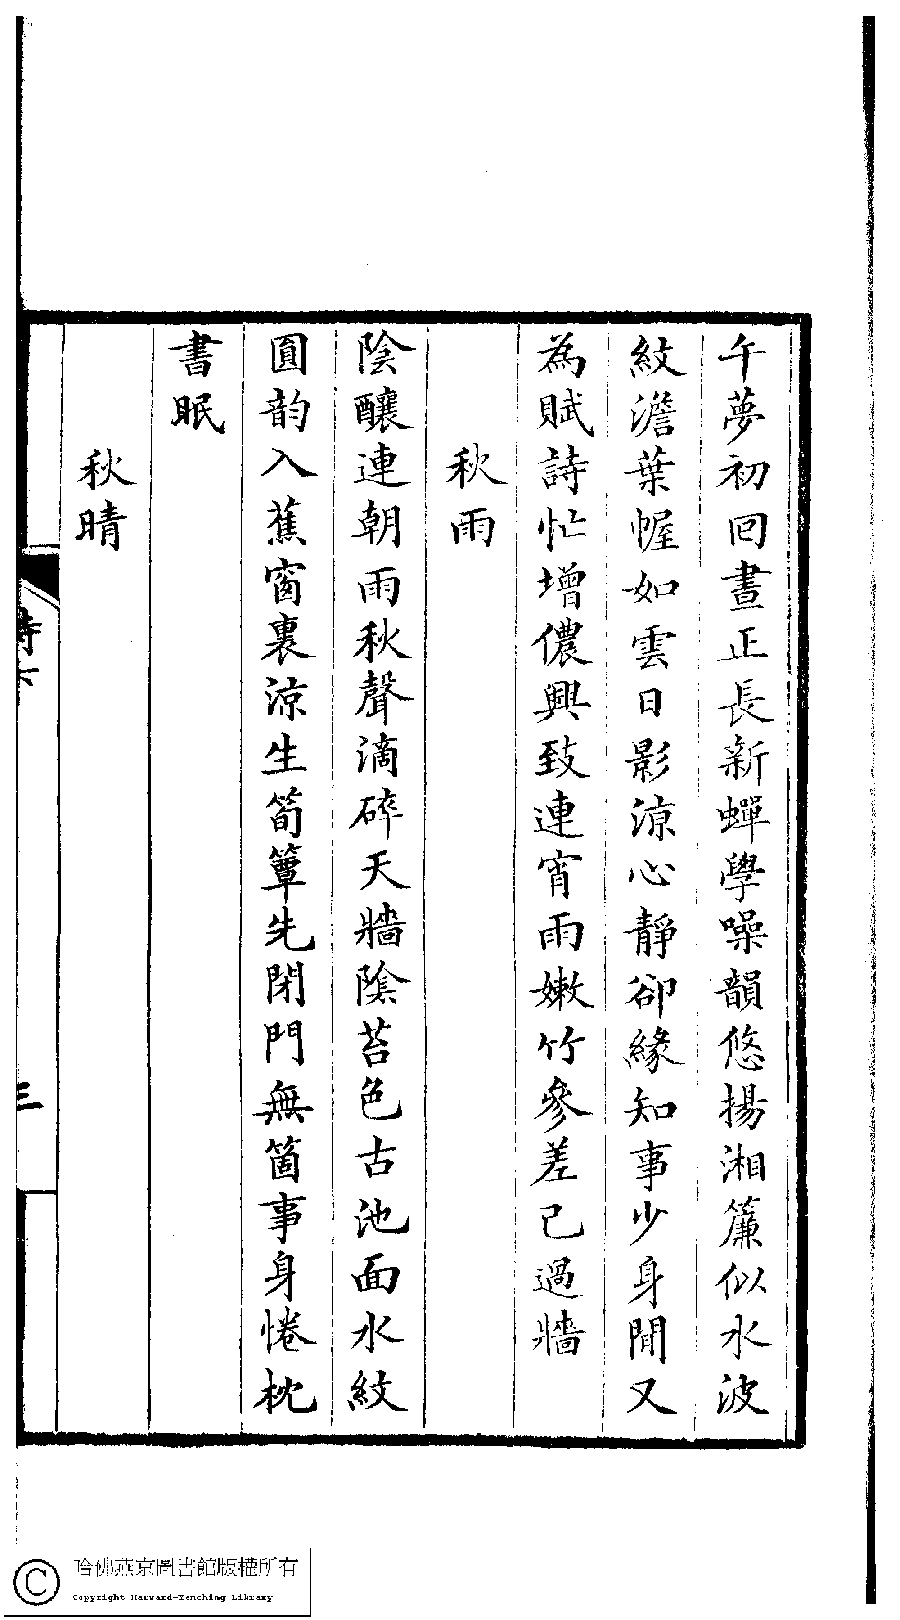 午夢初回晝正長新蟬學噪韻悠揚湘簾似水波
紋澹葉幄如雲日影涼心靜卻緣知事少身閒又
為賦詩忙增儂興致連宵雨嫩竹參差已過牆
秋雨
陰釀連朝雨秋聲滴碎天牆陰苔色古池面水紋
圓韵入蕉窗裏涼生筍簟先閉門無箇事身惓枕
書眠
秋晴
三
哈佛燕京圖書館版權所有
Copyright Harvard-Yenching Library